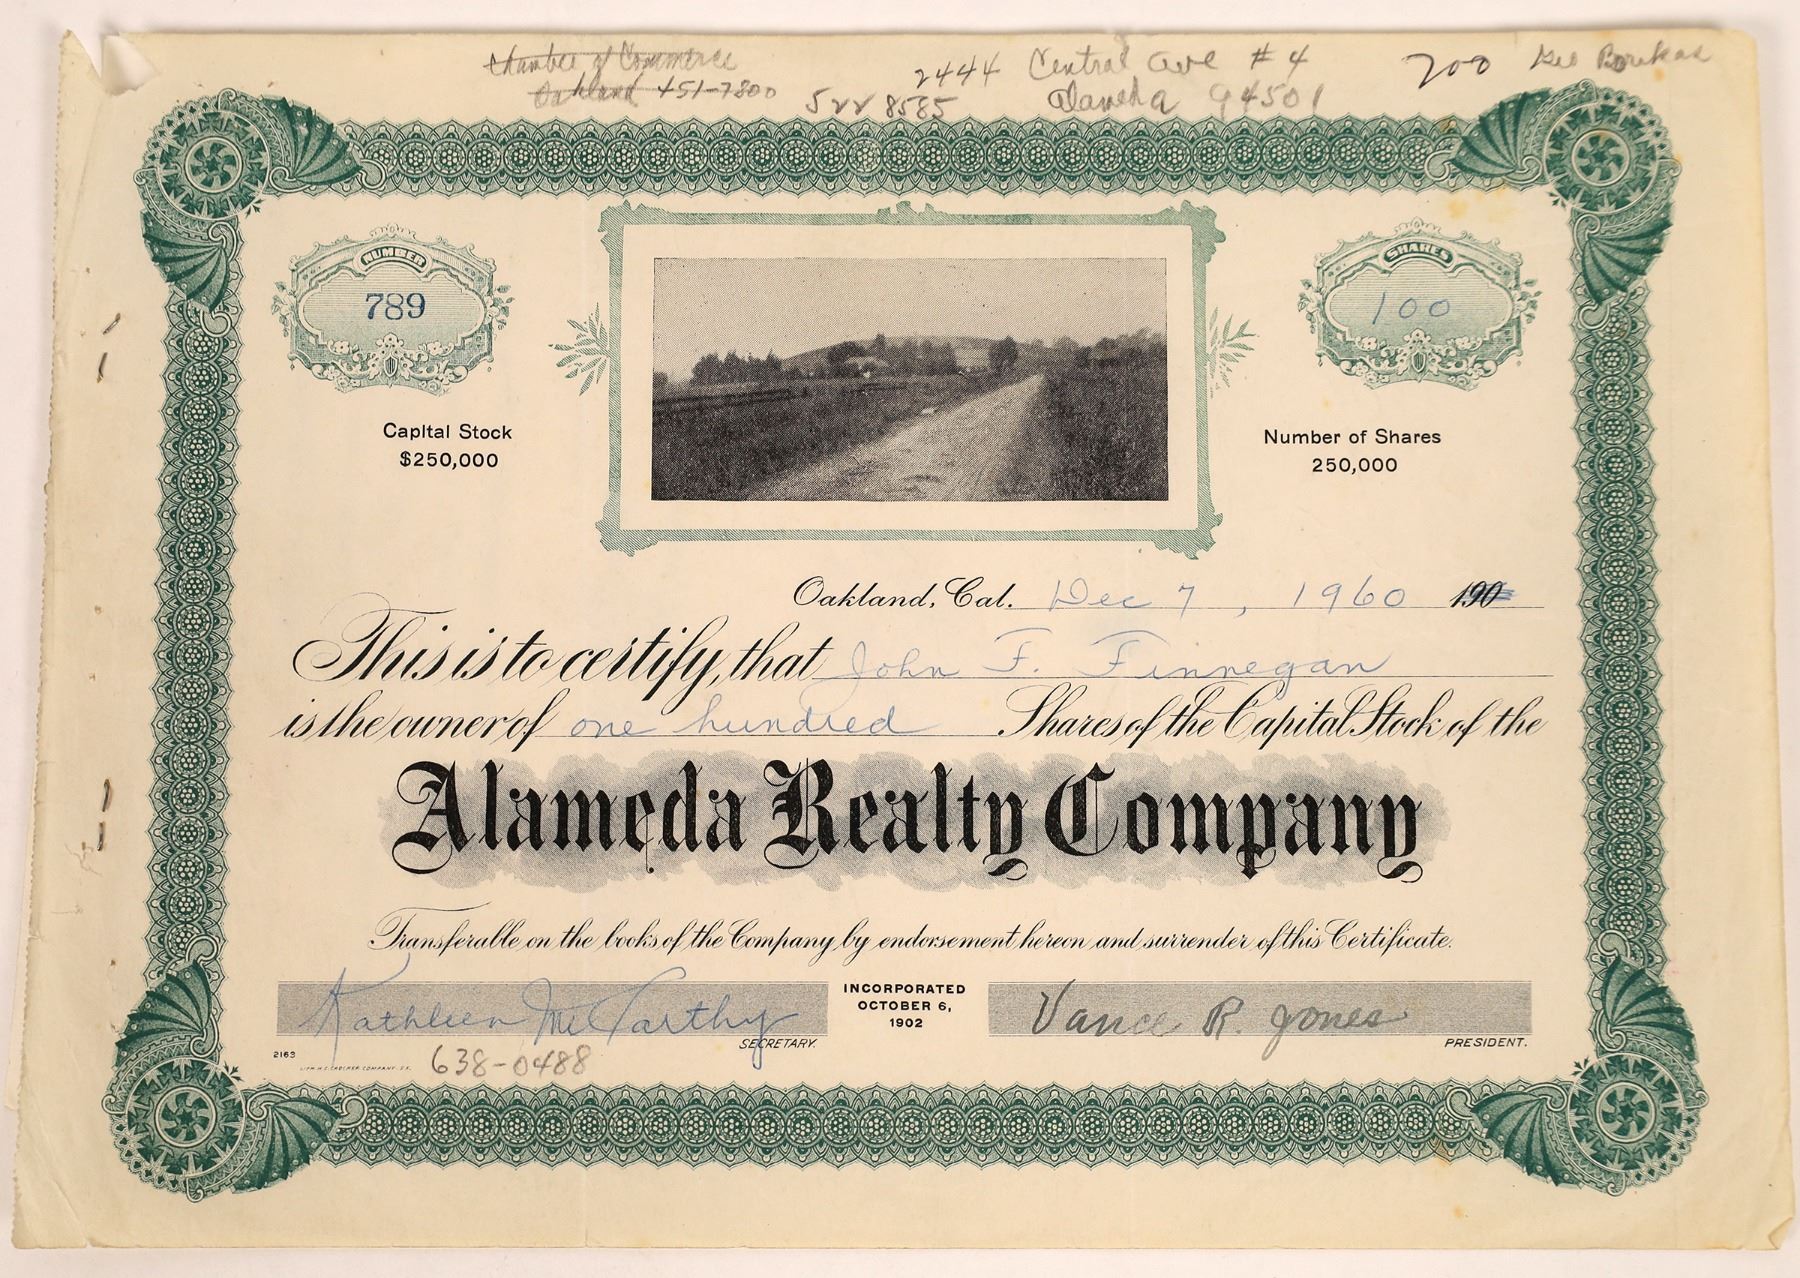 Chamber of Commerce
Oakland 451-7800
522 8585
2444 Central Ave #4
Alameda 94501
200 Geo
NUMBER
789
SHARES
100
Capital Stock
$250,000
Number of Shares
250,000
Oakland, Cal. Dec 7, 1960 190
This is to certify, that John F. Finnegan
is the owner of one hundred Shares of the Capital Stock of the
Alameda Realty Company
Transferable on the books of the Company by endorsement hereon and surrender of this Certificate.
Kathleen McCarthy
SECRETARY.
INCORPORATED
OCTOBER 6,
1902
Vance R. Jones
PRESIDENT.
2163
LITH. H.S. CROCKER COMPANY. S.F.
638-0488